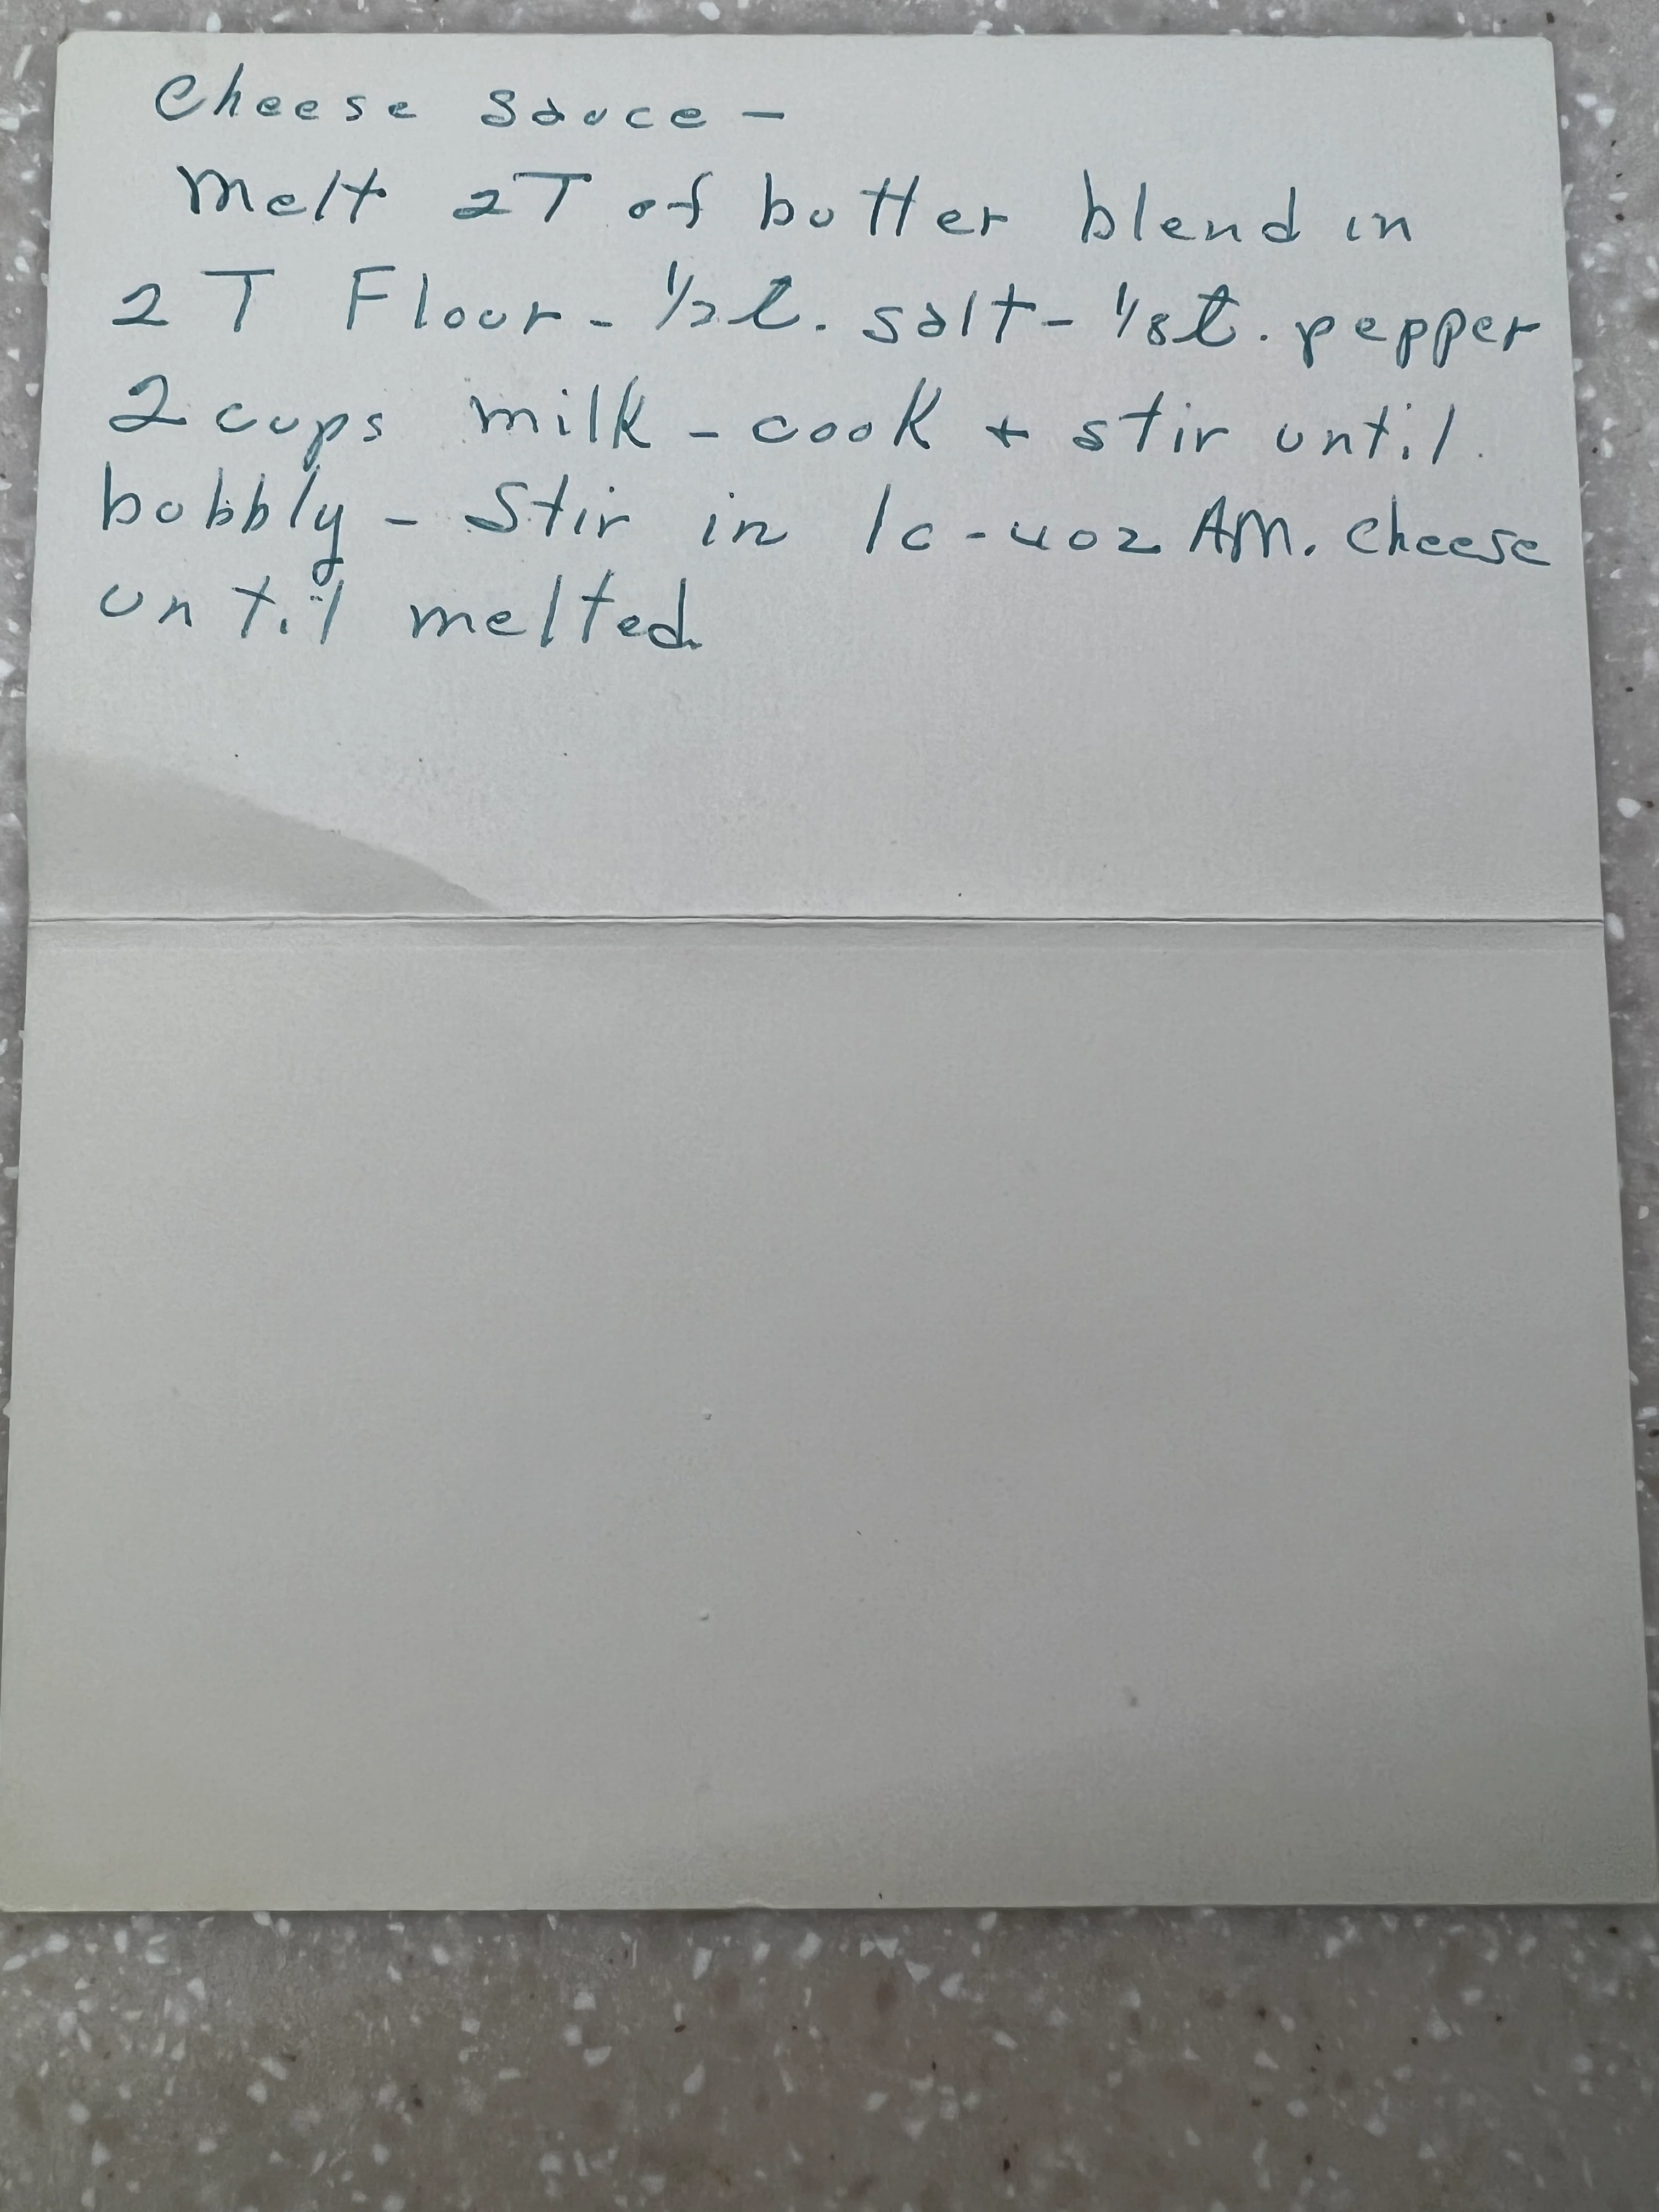 Cheese Sauce -
Melt 2T of butter blend in
2 T Flour - 1/2 t. salt - 1/8 t. pepper
2 cups milk - cook + stir until
bubbly - Stir in 1c - 4oz AM. cheese
until melted